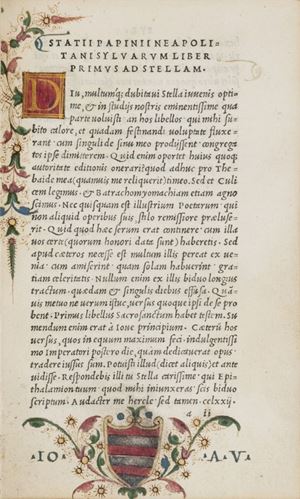 STATII PAPINII NEAPOLI
TANI SYLVARVM LIBER
PRIMVS AD STELLAM.
DIu, multumq; dubitaui Stella iuuenis opti
me, & in studijs nostris eminentissime qua
parte uoluisti an hos libellos qui mihi su-
bito calore, et quadam festinandi uoluptate fluxe-
rant cum singuli de sinu meo prodijssent congrega
tos ipse dimitterem. Quid enim oportet huius quoq;
autoritate editionis onerari? quod adhuc pro The
baide mea (quamuis me reliquerit) timeo. Sed et Culi
cem legimus & Batrachomyomachiam etiam agno
scimus. Nec quisquam est illustrium Poetarum qui
non aliquid operibus suis stilo remissiore præluse-
rit. Quid quod hæc serum erat continere cum illa
uos certe (quorum honori data sunt) haberetis. Sed
apud cæteros necesse est multum illis pereat ex ue-
nia cum amiserint quam solam habuerint gra-
tiam celeritatis. Nullum enim ex illis biduo longius
tractum. quædam & singulis diebus effusa. Quā
uis metuo ne uerum istuc, uersus quoque ipsi de se pro
bent. Primus libellus Sacrosanctum habet testem. Su
mendum enim erat à Ioue principium. Cæterū hos
uersus, quos in equum maximum feci indulgentissi
mo Imperatori postero die, quam dedicauerat opus
tradere iussus sum. Potuisti illud (dicet aliquis) et ante
uidisse. Respondebis illi tu Stella carissime qui Epi
thalamion tuum quod mihi iniunxeras scis biduo
scriptum. Audacter me hercle sed tamen .celxxij.
a ii
IO A V